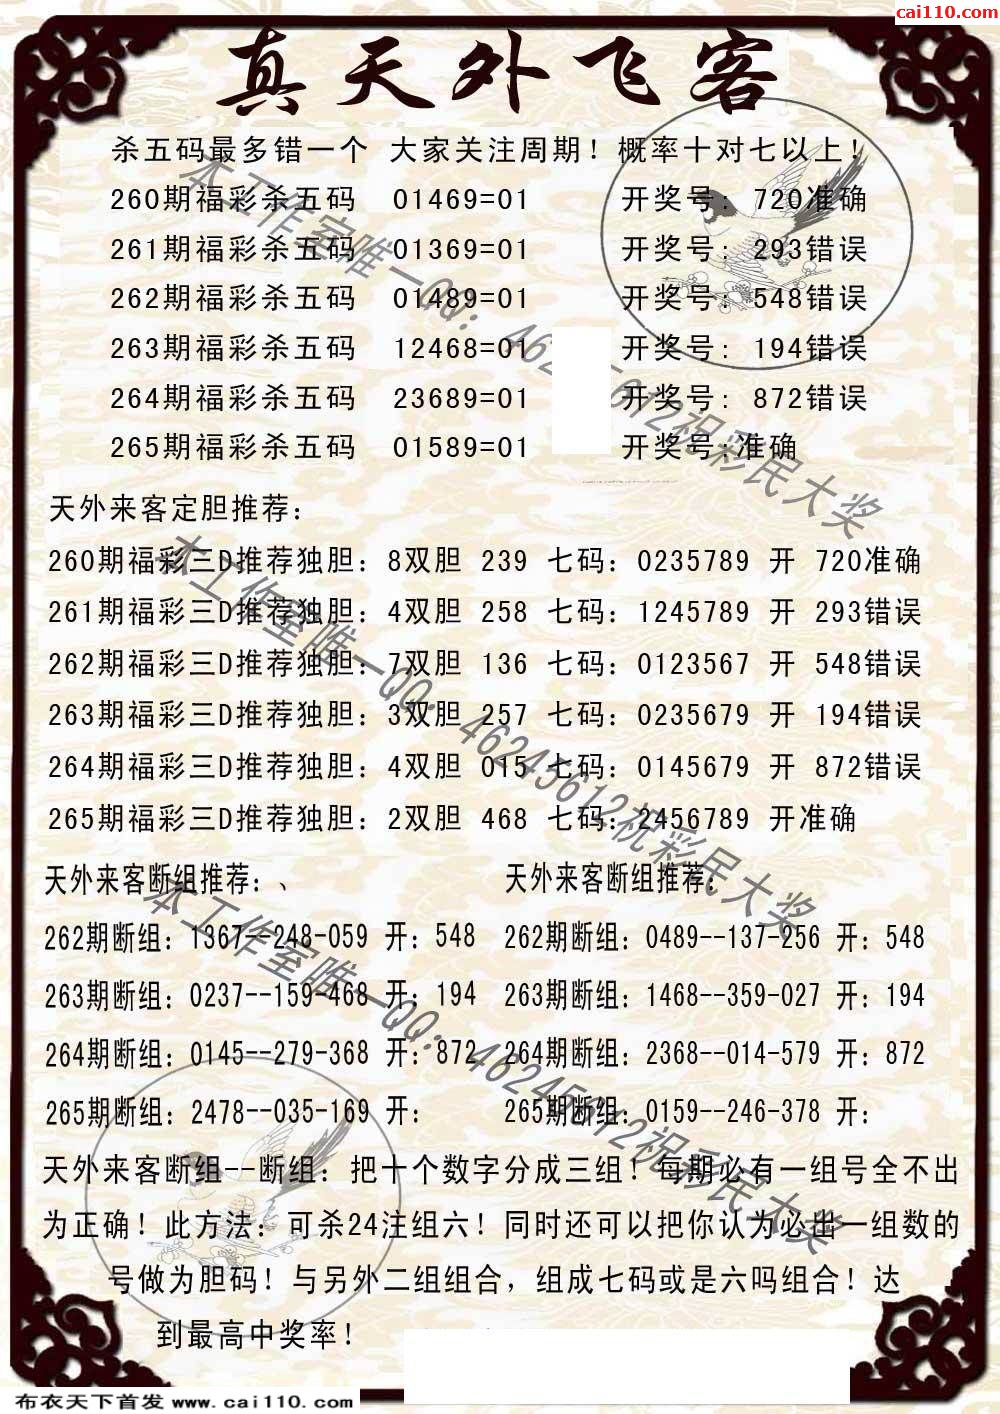 cai110.com
真天外飞客
杀五码最多错一个 大家关注周期！概率十对七以上！
260期福彩杀五码 01469=01 开奖号: 720准确
261期福彩杀五码 01369=01 开奖号: 293错误
262期福彩杀五码 01489=01 开奖号: 548错误
263期福彩杀五码 12468=01 开奖号: 194错误
264期福彩杀五码 23689=01 开奖号: 872错误
265期福彩杀五码 01589=01 开奖号:准确
天外来客定胆推荐:
260期福彩三D推荐独胆: 8双胆 239 七码: 0235789 开 720准确
261期福彩三D推荐独胆: 4双胆 258 七码: 1245789 开 293错误
262期福彩三D推荐独胆: 7双胆 136 七码: 0123567 开 548错误
263期福彩三D推荐独胆: 3双胆 257 七码: 0235679 开 194错误
264期福彩三D推荐独胆: 4双胆 015 七码: 0145679 开 872错误
265期福彩三D推荐独胆: 2双胆 468 七码: 2456789 开准确
天外来客断组推荐: 、 天外来客断组推荐:
262期断组: 1367--248-059 开: 548 262期断组: 0489--137-256 开: 548
263期断组: 0237--159-468 开: 194 263期断组: 1468--359-027 开: 194
264期断组: 0145--279-368 开: 872 264期断组: 2368--014-579 开: 872
265期断组: 2478--035-169 开: 265期断组: 0159--246-378 开:
天外来客断组--断组: 把十个数字分成三组！每期必有一组号全不出
为正确！此方法: 可杀24注组六！同时还可以把你认为必出一组数的
号做为胆码！与另外二组组合，组成七码或是六吗组合！达
到最高中奖率！
本工作室唯一QQ: 46245612祝彩民大奖
本工作室唯一QQ: 46245612祝彩民大奖
本工作室唯一QQ: 46245612祝彩民大奖
布衣天下首发 www.cai110.com